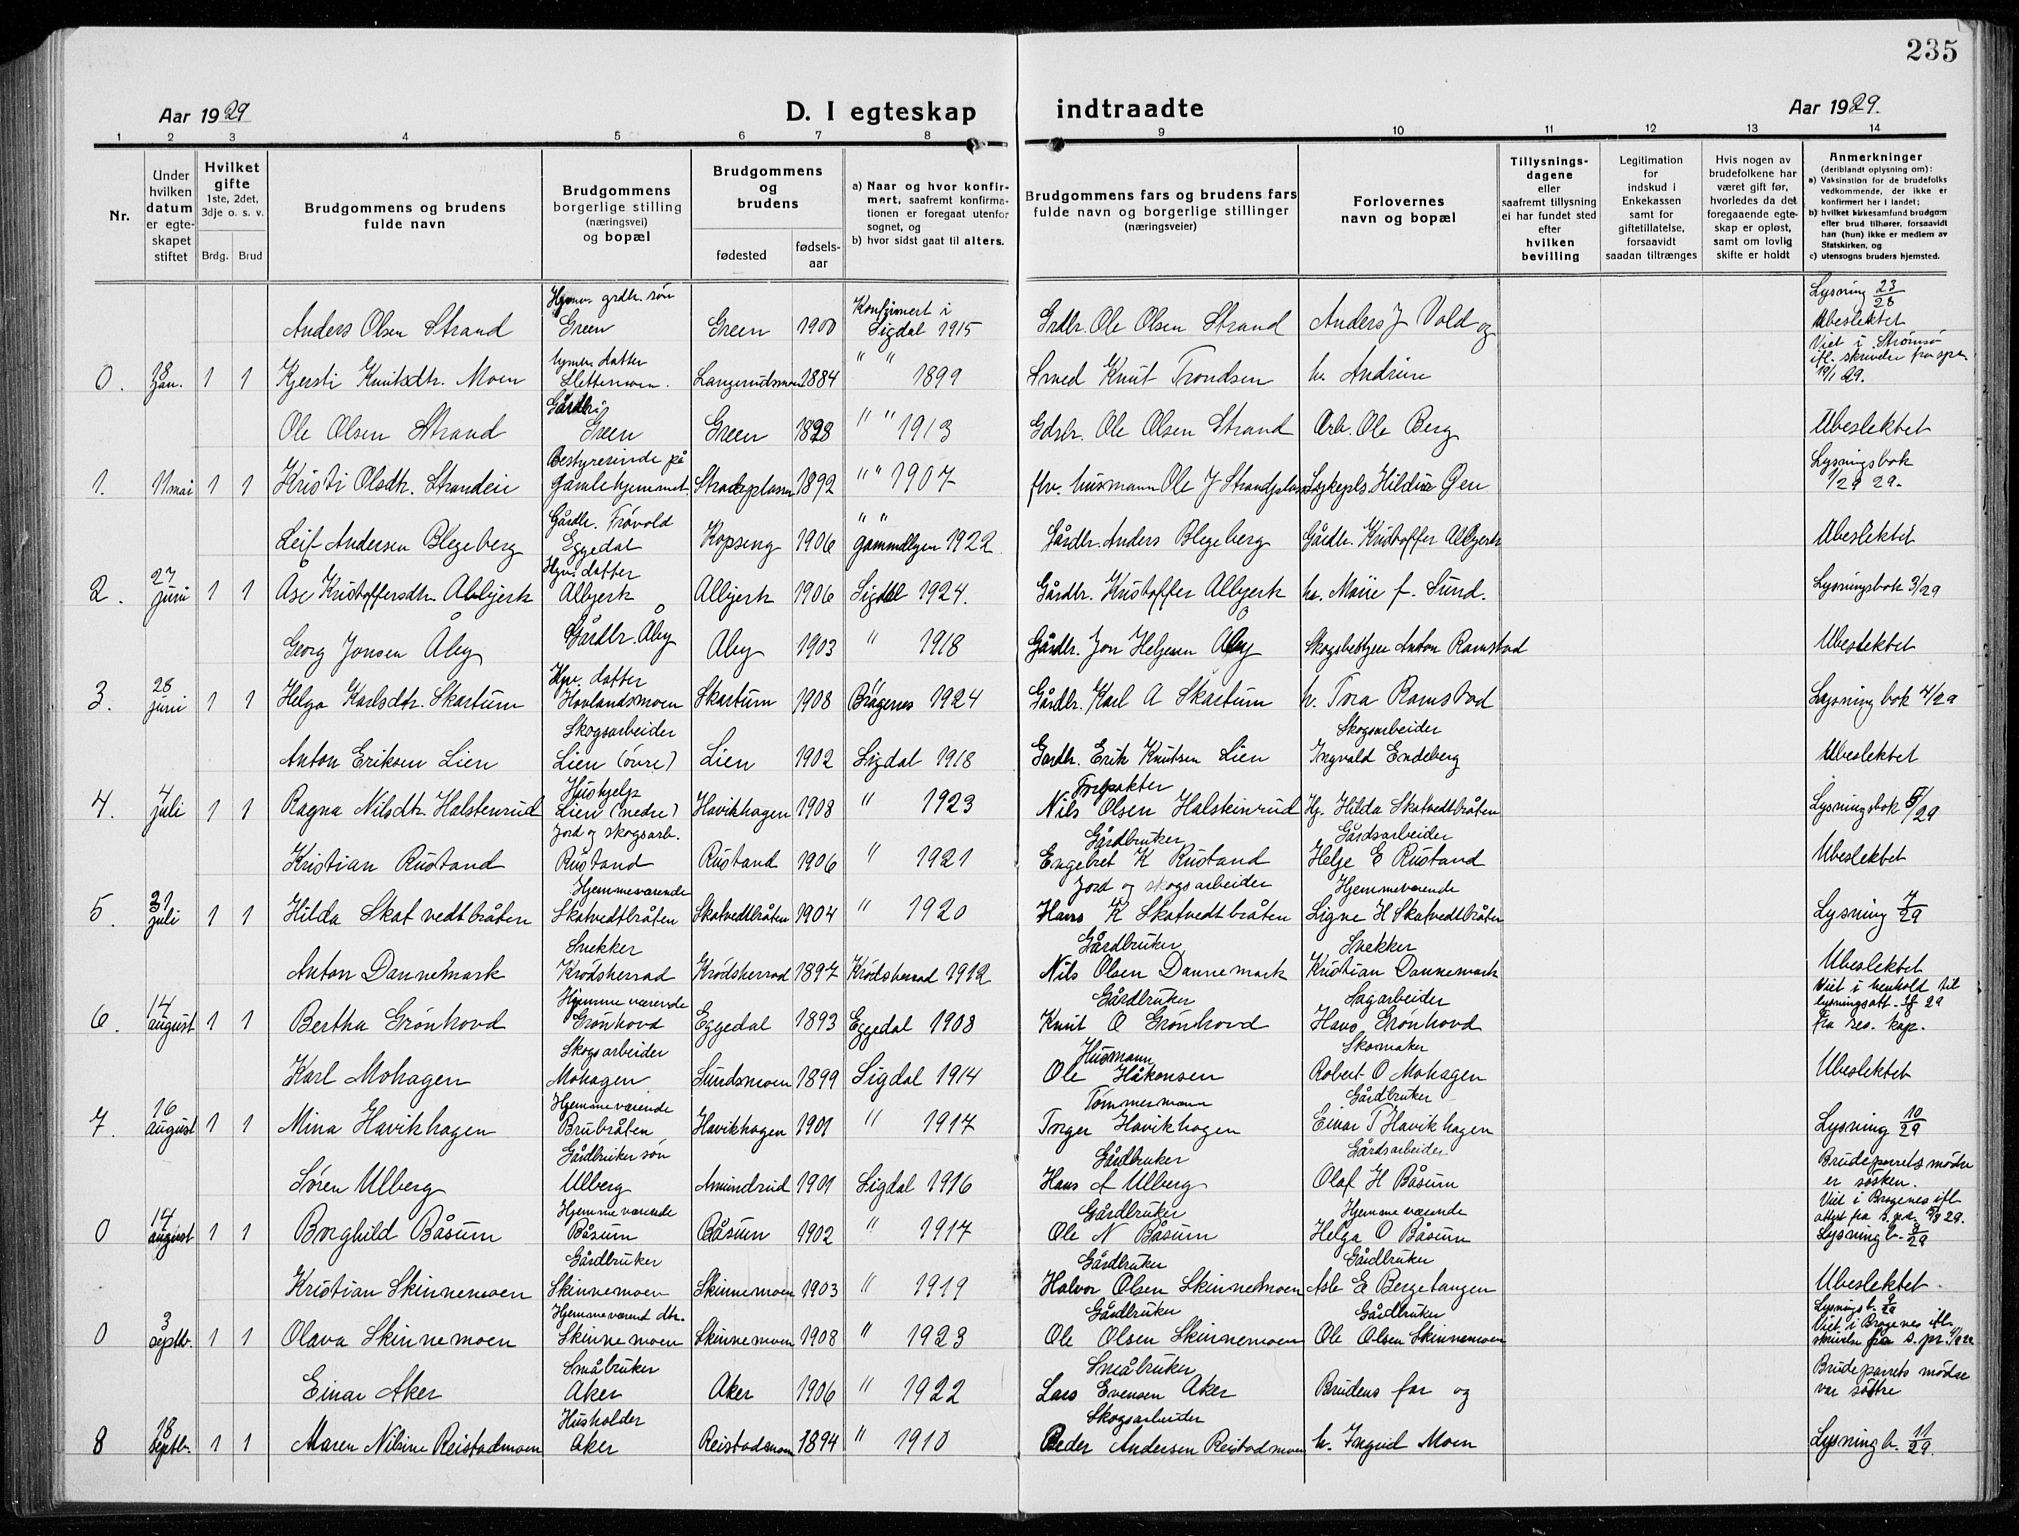 235
Aar 1929
D. I egteskap indtraadte
Aar 1929.
1 2 3 4 5 6 7 8 9 10 11 12 13 14
Nr.
Under
hvilken
datum
er egte-
skapet
stiftet
Hvilket
gifte
1ste, 2det,
3dje o. s. v.
Brdg. Brud
Brudgommens og brudens
fulde navn
Brudgommens
borgerlige stilling
(næringsvei)
og bopæl
Brudgommens
og
brudens
fødested
fødsels-
aar
a) Naar og hvor konfir-
mert, saafremt konfirma-
tionen er foregaat utenfor
sognet, og
b) hvor sidst gaat til alters.
Brudgommens fars og brudens fars
fulde navn og borgerlige stillinger
(næringsveier)
Forlovernes
navn og bopæl
Tillysnings-
dagene
eller
saafremt tillysning
ei har fundet sted
efter
hvilken
bevilling
Legitimation
for
indskud i
Enkekassen
samt for
giftetillatelse,
forsaavidt
saadan tiltrænges
Hvis nogen av
brudefolkene har
været gift før,
hvorledes da det
foregaaende egte-
skap er opløst,
samt om lovlig
skifte er holdt
Anmerkninger
(deriblandt oplysning om):
a) Vaksination for de brudefolks
vedkommende, der ikke er
konfirmert her i landet;
b) hvilket kirkesamfund brudgom
eller brud tilhører, forsaavidt
han (hun) ikke er medlem av
Statskirken, og
c) utensogns bruders hjemsted.
Hjemv. grdbr. søn Konfirmert i Lysning 23/28
Anders Olsen Strand Green Green 1900 Sigdal 1915 Grdbr. Ole Olsen Strand Anders J Vold og Ubeslektet
hjemv. datter Viet i Strømsø
0. 18 jan. 1 1 Kjersti Knutsdtr. Moen Slettemoen. Langerudsmoen 1884 " " 1899 Smed Knut Trondsen h. Andrine 19/1 29.
Gårdbr.
Ole Olsen Strand Green Green 1898 " " 1913 Gdbr. Ole Olsen Strand Arb. Ole Berg Ubeslektet
Bestyrerinde på Lysningsbok
1. 11 mai 1 1 Kristi Olsdtr. Strandeie Gamlehjemmet 1892 " " 1907 fhv. husmann Ole J Hildur Gen 1/29 29.
Gårdbr. Frøvold " "
Leif Andersen Blegeberg Eggedal Kopseng 1906 1922 Gårdbr. Anders Blegeberg Gårdbr. Kristoffer Albjerk Ubeslektet
Hjv. datter
2. 27 juni 1 1 Åse Kristoffersdtr. Albjerk Albjerk Albjerk 1906 Sigdal 1924. Gårdbr. Kristoffer Albjerk h. Marie f. Sund. Lysningsbok 3/29
Georg Jonsen Åby Gårdbr. Åby Åby 1903 " 1918 Gårdbr. Jon Helgesen Åby Anton Ramstad Ubeslektet
Hjv. datter
3. 28 juni 1 1 Helga Karlsdtr. Skartum Hovlandsmoen Skartum 1908 Bragenes 1924 Gårdbr. Karl A Skartum h. Tora Ramstad Lysning bok 4/29
Skogsarbeider Skogsarbeider
Anton Eriksen Lien Lien (øvre) Lien 1902 Sigdal 1918 Gardbr. Erik Knutsen Lien Ingvald Endeberg Ubeslektet
Hushjelp Forpakter
4. 4 juli 1 1 Ragna Nilsdtr. Halstenrud Lien (nedre) Havikhagen 1908 " 1923 Nils Olsen Halstenrud Hj. Hilda Skatvedtbråten Lysningsbok 5/29
Jord og skogsarb. Gårdbruker Gårdsarbeider
Kristian Rustand Rustand Rustand 1906 " 1921 Engebret K Rustand Helge E Rustand Ubeslektet
Hjemmeværende Jord og skogsarbeider Hjemmeværende
5. juli 1 1 Hilda Skatvedtbråten Skatvedtbråten Skatvedtbråten 1904 " 1920 Hans K Skatvedtbråten Signe H Skatvedtbråten Lysning 7/29
Snekker Gårdbruker Snekker
Anton Dannemark Krødsherrad Krødsherrad 1897 Krødsherrad 1912 Nils Olsen Dannemark Kristian Dannemark Ubeslektet
Hjemmeværende Gårdbruker Sagarbeider Viet i henhold til
6. 14 august 1 1 Bertha Grønhovd Grønhovd Eggedal 1893 Eggedal 1908 Knut O Grønhovd Hans Grønhovd fra res. kap.
Skogsarbeider Husmann Skomaker
Karl Mohagen Mohagen Sundsmoen 1899 Sigdal 1914 Ole Håkonsen Robert O Mohagen Ubeslektet
Hjemmeværende Tømmermann Gårdbruker
7. 16 august 1 1 Mina Havikhagen Brubråten Havikhagen 1901 " 1917 Torger Havikhagen Einar T Havikhagen Lysning 10/29
Gårdbruker søn Gårdbruker Gårdsarbeider Brudeparrets mødre
Søren Ulberg Ulberg Amundrud 1901 Sigdal 1916 Hans A Ulberg Olaf H Båsum er søsken.
Hjemmeværende Gårdbruker Hjemmeværende Viet i Bragenes ifl.
attest fra s.pr. 5/8 29.
0 14 august 1 1 Borghild Båsum Båsum Båsum 1902 " 1917 Ole N Båsum Helga O Båsum Lysning b. 8/29
Gårdbruker Gårdbruker Gårdbruker
Kristian Skinnemoen Skinnemoen Skinnemoen 1903 " 1919 Halvor Olsen Skinnemoen Asle E Bergehangen Ubeslektet.
Hjemmeværend dtr. Gårdbruker Gårdbruker Lysnings b. 9/29
Viet i Bragenes ifl.
0 3 septb. 1 1 Olava Skinnemoen Skinnemoen Skinnemoen 1908 " 1923 Ole Olsen Skinnemoen Ole Olsen Skinnemoen fra s. pr.
Småbruker Småbruker Brudeparrets mødre
Einar Aker Aker Aker 1906 " 1922 Lars Evensen Aker Brudens far og var søstre
Husholder Skogsarbeider
8 18 septb. 1 1 Maren Nilsine Reistadmoen Aker Reistadmoen 1894 " 1910 Peder Andersen Reistadmoen h. Ingrid Moen Lysning b. 11/29.